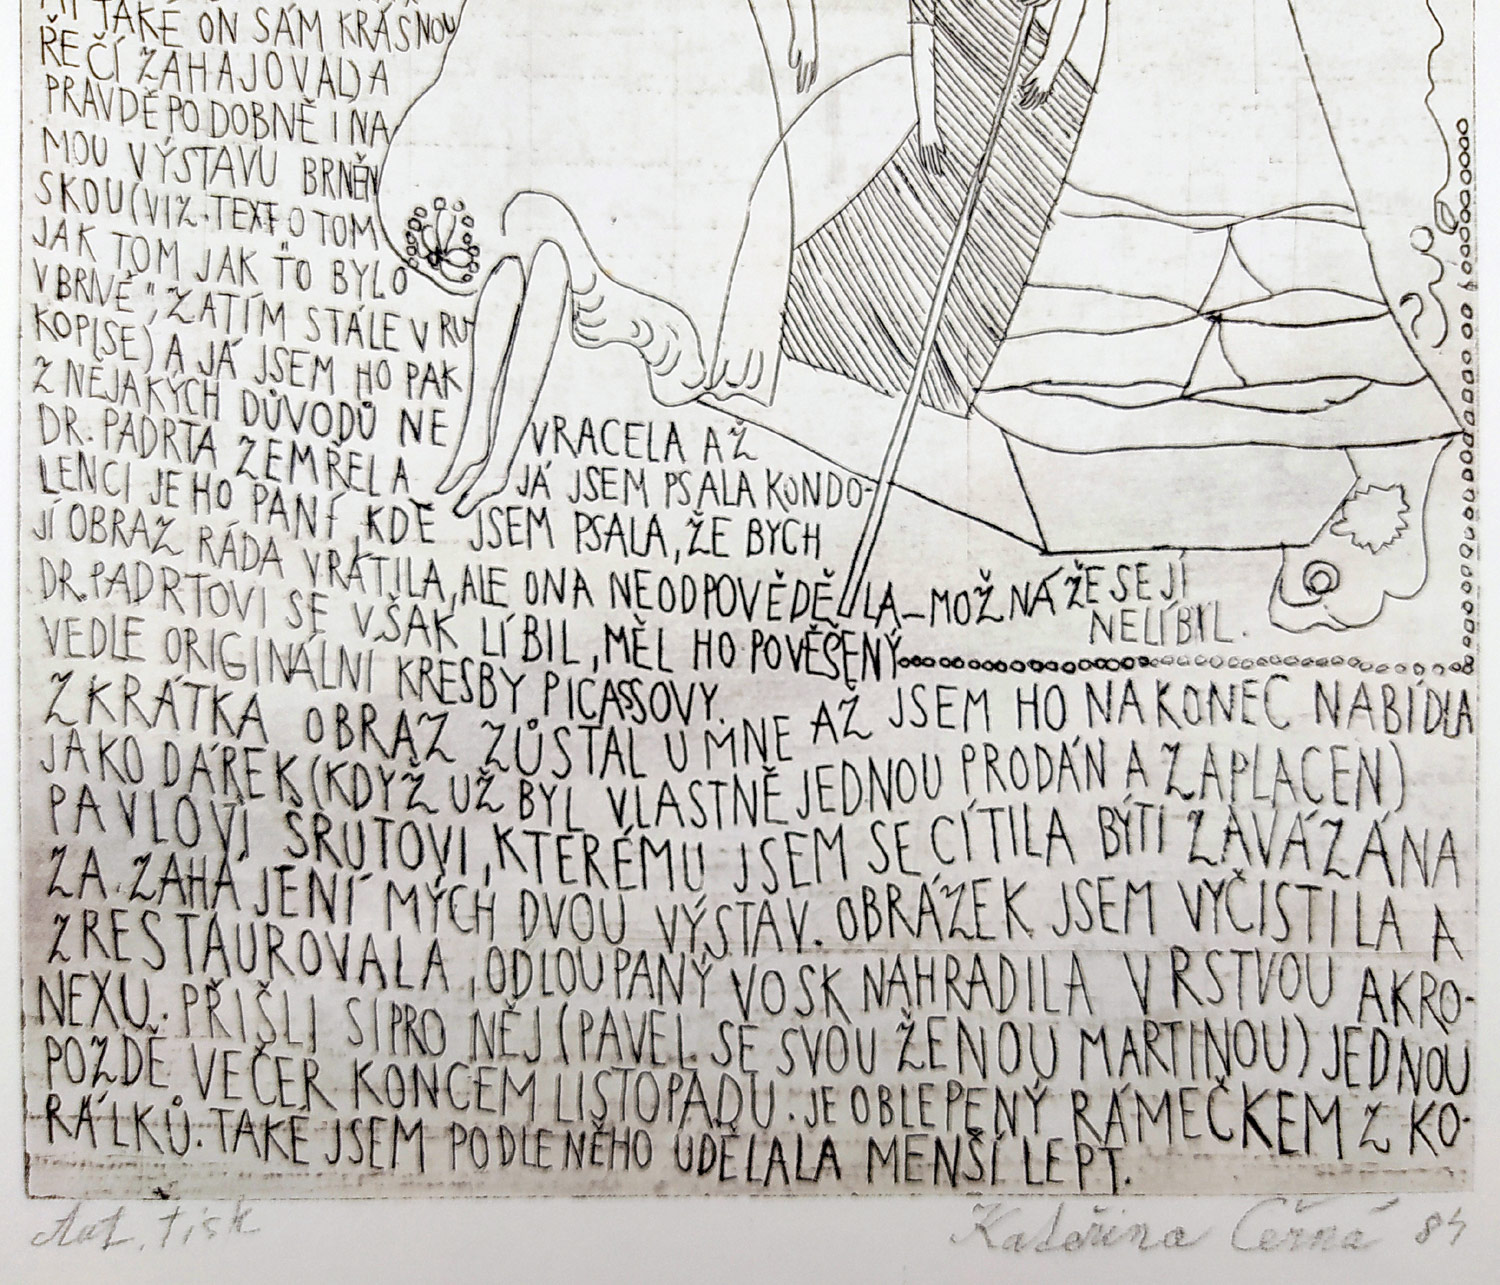 TAKÉ ON SÁM KRÁSNOU
ŘEČÍ ZAHAJOVAL) A
PRAVDĚPODOBNĚ I NA
MOU VÝSTAVU BRNĚN
SKOU (VIZ. TEXT O TOM
JAK TOM JAK TO BYLO
V BRNĚ", ZATÍM STÁLE V RU
KOPISE) A JÁ JSEM HO PAK
Z NĚJAKÝCH DŮVODŮ NE
VRACELA AŽ
DR. PADRTA ZEMŘEL A JÁ JSEM PSALA KONDO-
LENCI JEHO PANÍ, KDE JSEM PSALA, ŽE BYCH
JÍ OBRAZ RÁDA VRÁTILA, ALE ONA NEODPOVĚDĚLA – MOŽNÁ ŽE SE JÍ
NELÍBIL.
DR. PADRTOVI SE VŠAK LÍBIL, MĚL HO POVĚŠENÝ
VEDLE ORIGINÁLNÍ KRESBY PICASSOVY.
ZKRÁTKA OBRAZ ZŮSTAL U MNE AŽ JSEM HO NAKONEC NABÍDLA
JAKO DÁREK (KDYŽ UŽ BYL VLASTNĚ JEDNOU PRODÁN A ZAPLACEN)
PAVLOVI ŠRUTOVI, KTERÉMU JSEM SE CÍTILA BÝTI ZAVÁZÁNA
ZA ZAHÁJENÍ MÝCH DVOU VÝSTAV. OBRÁZEK JSEM VYČISTILA A
ZRESTAUROVALA, ODLOUPANÝ VOSK NAHRADILA VRSTVOU AKRO-
NEXU. PŘIŠLI SI PRO NĚJ (PAVEL SE SVOU ŽENOU MARTINOU) JEDNOU
POZDĚ VEČER KONCEM LISTOPADU. JE OBLEPENÝ RÁMEČKEM Z KO-
RÁLKŮ. TAKÉ JSEM PODLE NĚHO UDĚLALA MENŠÍ LEPT.
Aut. tisk
Kateřina Černá 84